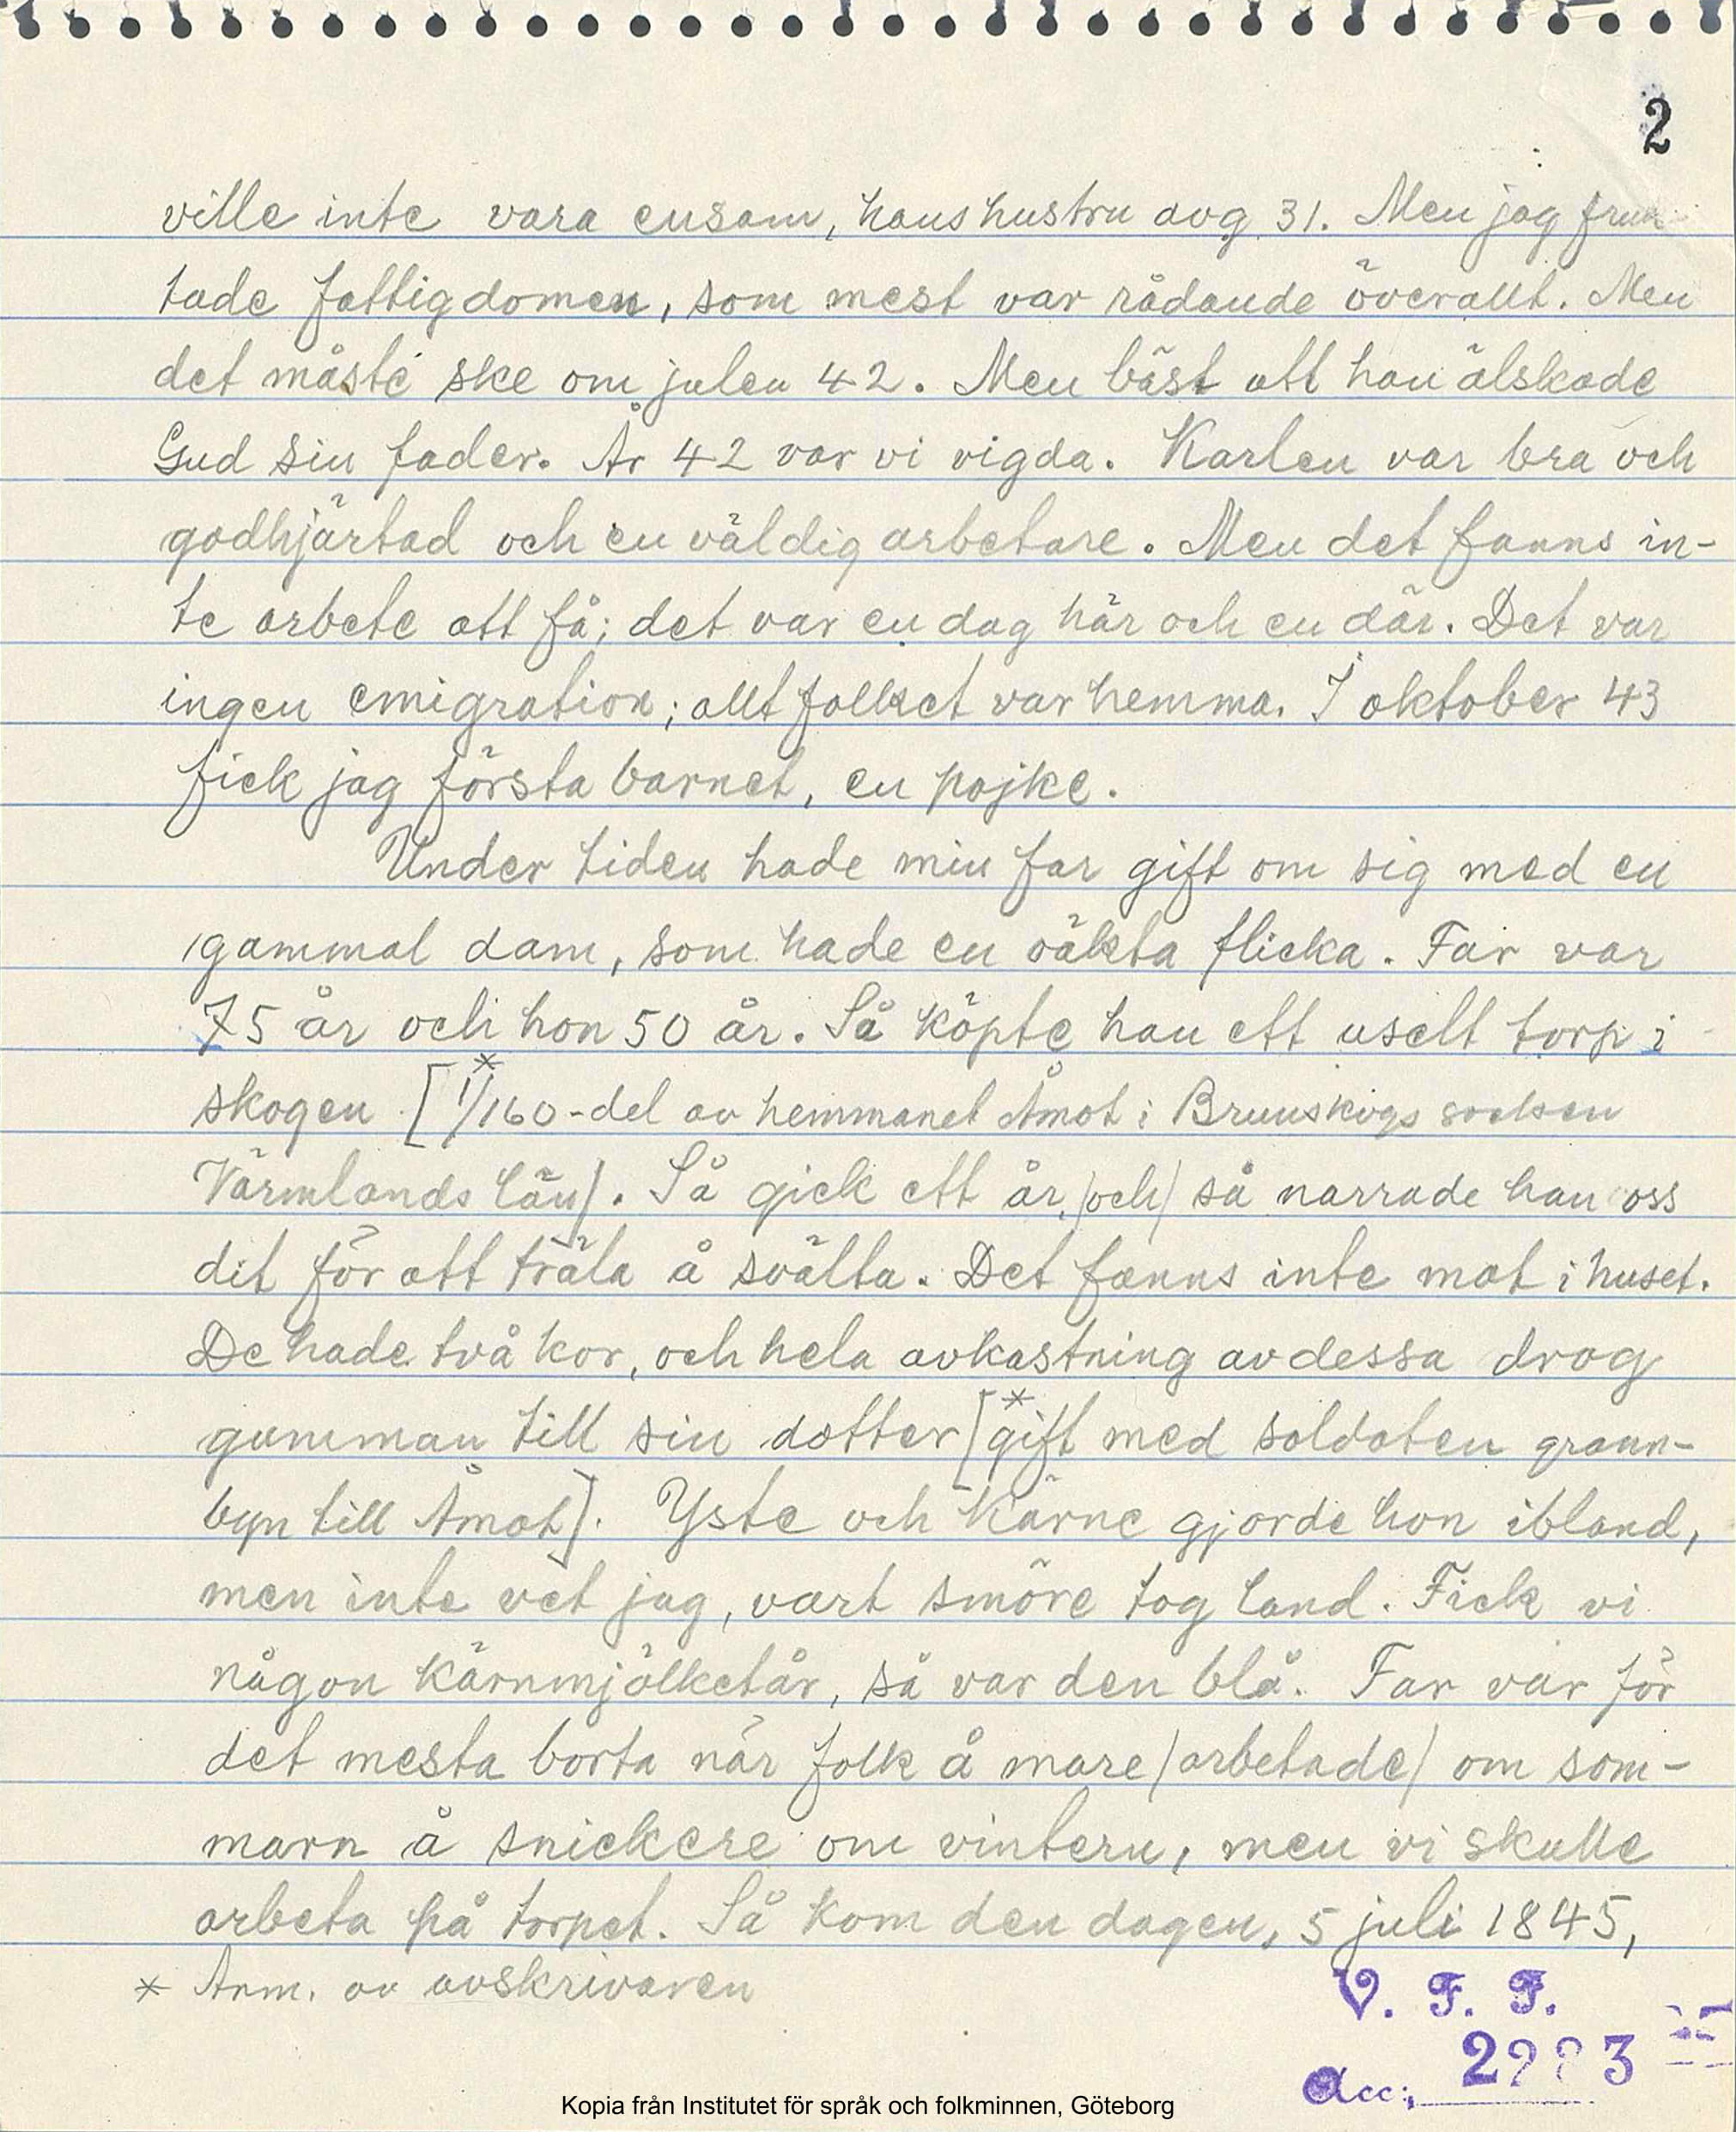 2
ville inte vara ensam, hans hustru dog 31. Men jag fruk
tade fattigdomen, som mest var rådande överallt. Men
det måste ske om julen 42. Men bäst att han älskade
Gud sin fader. År 42 var vi vigda. Karlen var bra och
godhjärtad och en väldig arbetare. Men det fanns in-
te arbete att få; det var en dag här och en där. Det var
ingen emigration; allt folket var hemma. I oktober 43
fick jag första barnet, en pojke.
Under tiden hade min far gift om sig med en
gammal dam, som hade en oäkta flicka. Far var
75 år och hon 50 år. Så köpte han ett uselt torp i
skogen [* 1/160-del av hemmanet Åmot i Brunskogs socken
Värmlands län]. Så gick ett år, /och/ så narrade han oss
dit för att träla å svälta. Det fanns inte mat i huset.
De hade två kor, och hela avkastning av dessa drog
gumman till sin dotter [* gift med soldaten grann-
byn till Åmot]. Yste och kärne gjorde hon ibland,
men inte vet jag, vart smöre tog land. Fick vi
någon kärnmjölketår, så var den blå. Far var för
det mesta borta när folk å mare /arbetade/ om som-
marn å snickere om vintern, men vi skulle
arbeta på torpet. Så kom den dagen, 5 juli 1845,
* Anm. av avskrivaren
V. F. F.
Acc:
Kopia från Institutet för språk och folkminnen, Göteborg